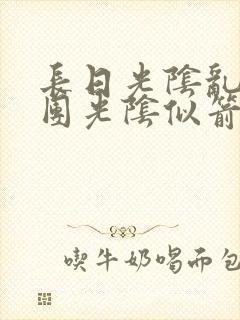 長日光陰亂
團光陰似箭
喫牛奶喝而包